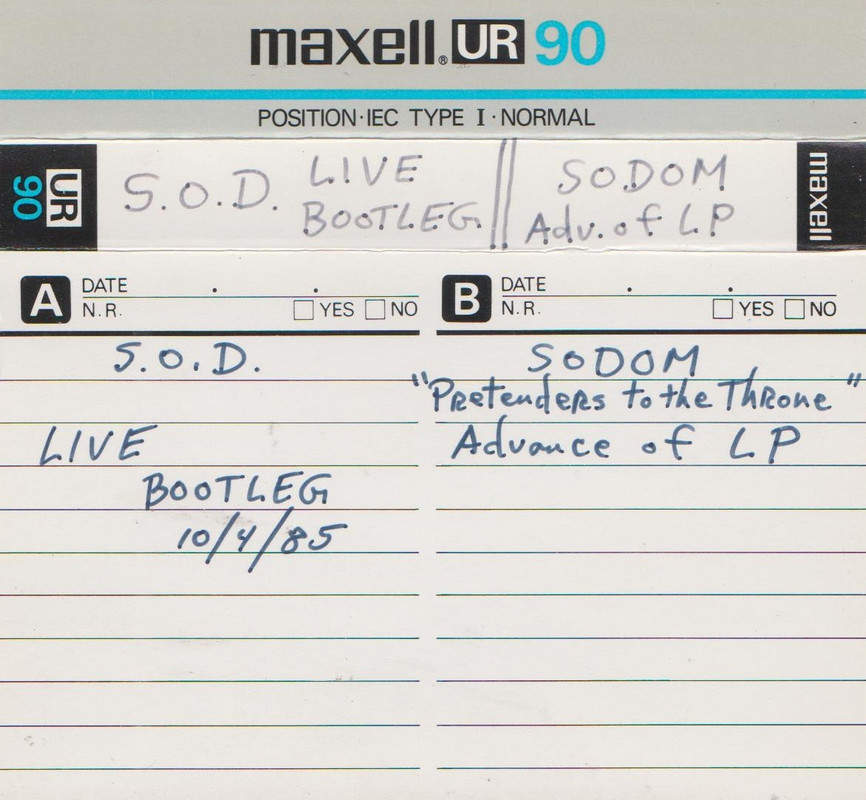 maxell® UR 90
POSITION·IEC TYPE I·NORMAL
UR 90
S.O.D. LIVE BOOTLEG
SODOM
Adv. of LP
maxell
A DATE . .
N.R. YES NO
S.O.D.
LIVE
BOOTLEG
10/4/85
B DATE . .
N.R. YES NO
SODOM
"Pretenders to the Throne"
Advance of LP